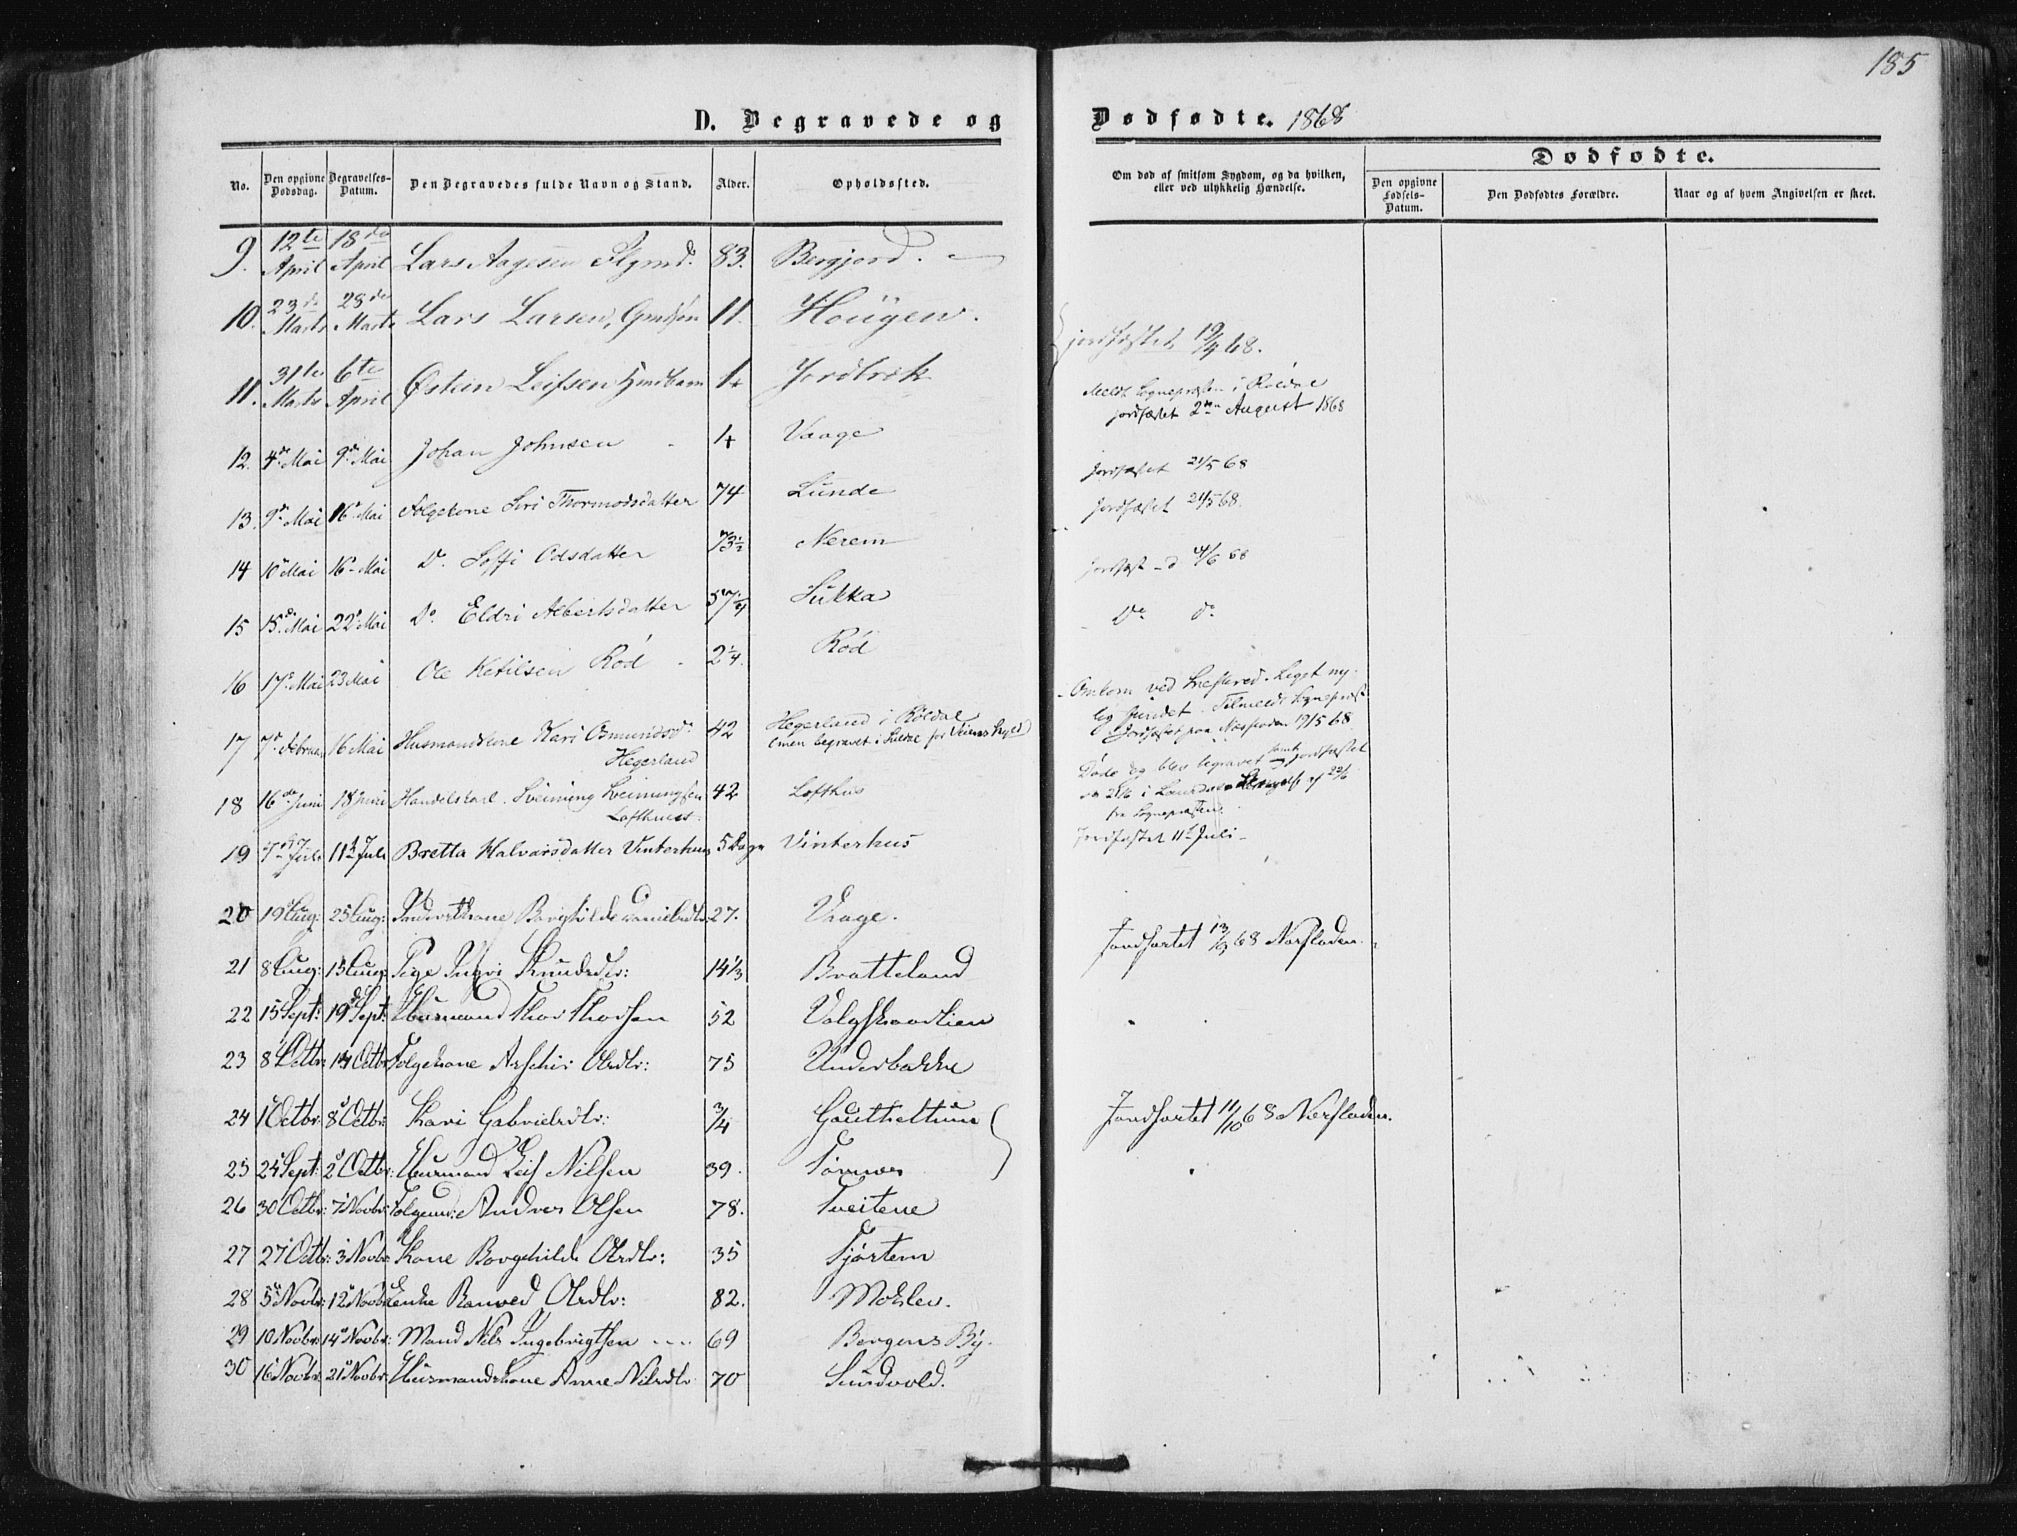 185
D. Begravede og Dødfødte. 1868
Dødfødte.
No. Den opgivne Dødsdag. Begravelses-Datum. Den Begravedes fulde Navn og Stand. Alder. Opholdssted. Om død af smitsom Sygdom, og da hvilken, eller ved ulykkelig Hændelse. Den opgivne Fødsels-Datum. Den Dødfødtes Forældre. Naar og af hvem Angivelsen er skeet.
9. 12te April 18de April Lars Aagesen 83. Bergjord.
10. 23de Marts 28de Marts Lars Larsen, 11. Hougen. jordfæstet 19/4 68.
11. 31te Marts 6te April Østein Leifsen 1 Jordbræk
jordfæstet 2den August 1868
12. 4de Mai 9de Mai Johan Johnsen Vaage Jordfæstet 21/5 68
13. 9de Mai 16de Mai Folgekone Siri Thormodsdatter 74 Lunde Jordfæstet 21/5 68.
14 10de Mai 16de Mai Do. Soffi Odsdatter 73½ Nerem
15 15de Mai 22de Mai Do. Eldri Albertsdatter Sukka Do do
16 17de Mai 23 Mai Ole Ketilsen Rød 2¼ Rød Omkom ved Liget ny-
lig fundet.
Jordfæstet paa Næsfladen 19/5 68
17 7de Februar 16 Mai Husmandskone Kari Osmundsdr. Hegerland 42 Hegerland i Røldal
(men begravet i Suldal for Veiens Skyld) Døde og blev begravet samt jordfæstet
fra Sognepræsten.
18 16de Juni 18 Juni Handelskarl. Sveinung Sveinungsen Lofthuus. 42 Lofthus
19 7de Juli 11te Juli Bretta Halvarsdatter Vinterhus 5 Dage Vinterhus Jordfæstet 11te Juli
20 19 Aug: 25 Aug: Borghilde Danielsdtr. 27. Vaage.
21 8 Aug: 15 Aug: Pige Ingri Knudsdtr: 14⅓ Bratteland Jordfæstet 13/9 68 Næsfladen.
22 15 Sept: 19 Sept: Husmand Thor Thorsen 52
23 8 Octbr: 14 Octbr: Folgekone Olsdtr: 75 Underbakke
24 1 Octbr: 8 Octbr: Kari Gabrielsdtr: ¾ Jordfæstet 11/10 68 Næsfladen.
25 24 Sept: 2 Octbr: Husmand Leif Nilsen 39.
26 30 Octbr: 7 Novbr: Folgemd: Andres Olsen 78. Tveitene
27 27 Octbr: 3 Novbr: Kone Borgehilde Olsdtr: 35 Fjørtem
28 5 Novbr: 12 Novbr: Enke Ranved Olsdtr: 82. Moklev.
29 10 Novbr: 14 Novbr: Mand Nils Ingebrigtsen 69 Bergens By.
30 16 Novbr: 21 Novbr: Husmandskone Anne Nilsdtr 70 Sundvold.